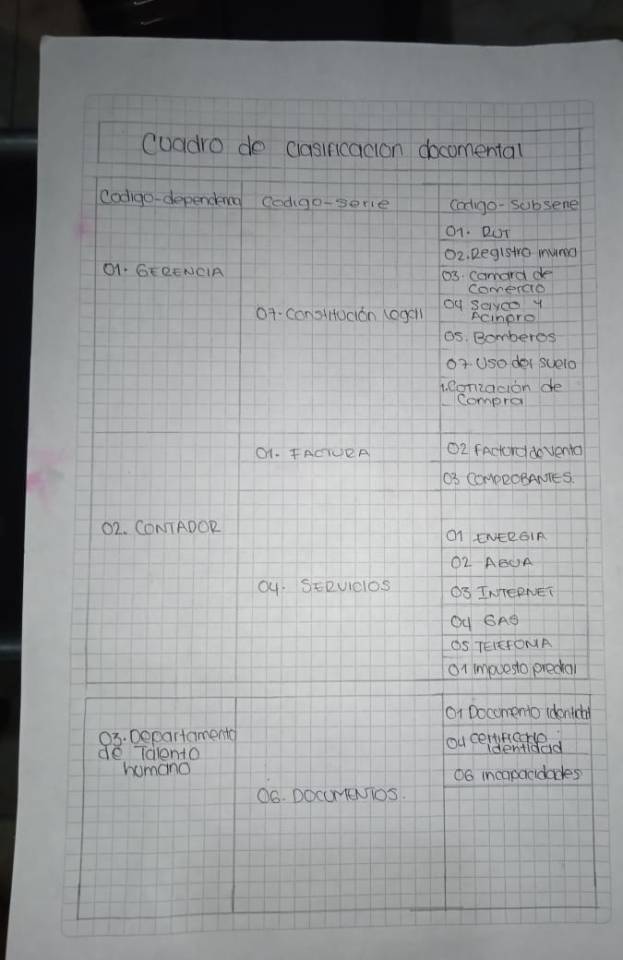 Cuadro de clasificacion documental
Codigo-dependencia Codigo-serie Codigo-Subserie
01. RUT
02. Registro
01. GERENCIA
03. Camara de
Comercio
04 Sayco y
Acinpro
07. Constitución Legal
05. Bomberos
07 Uso del suelo
1. Cotización de
Compra
01. FACTURA
02 Factura de venta
03 COMPROBANTES.
02. CONTADOR
01 ENERGIA
02 AGUA
04. SERVICIOS
03 INTERNET
04 GAS
05 TELEFONIA
01 Impuesto predial
01 Documento identidad
03. Departamento
de Talento
humano
04 certificado
identidad
06 incapacidades
06. DOCUMENTOS.